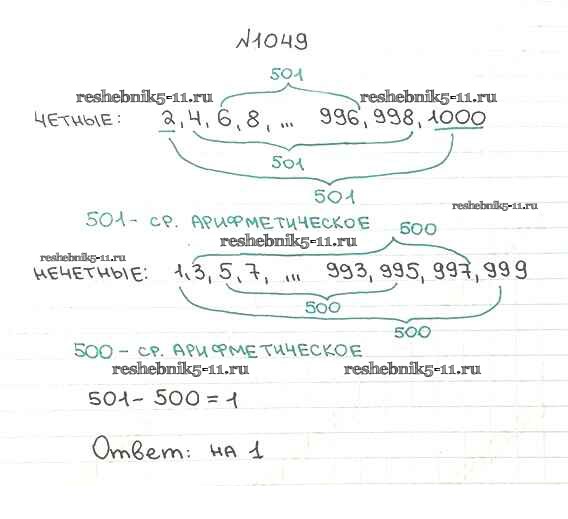 №1049
501
reshebnik5-11.ru reshebnik5-11.ru
ЧЕТНЫЕ: 2, 4, 6, 8, ... 996, 998, 1000
501
501
reshebnik5-11.ru
501 - СР. АРИФМЕТИЧЕСКОЕ 500
reshebnik5-11.ru
reshebnik5-11.ru
НЕЧЕТНЫЕ: 1, 3, 5, 7, ... 993, 995, 997, 999
500
500
500 - СР. АРИФМЕТИЧЕСКОЕ
reshebnik5-11.ru reshebnik5-11.ru
501 - 500 = 1
Ответ: НА 1